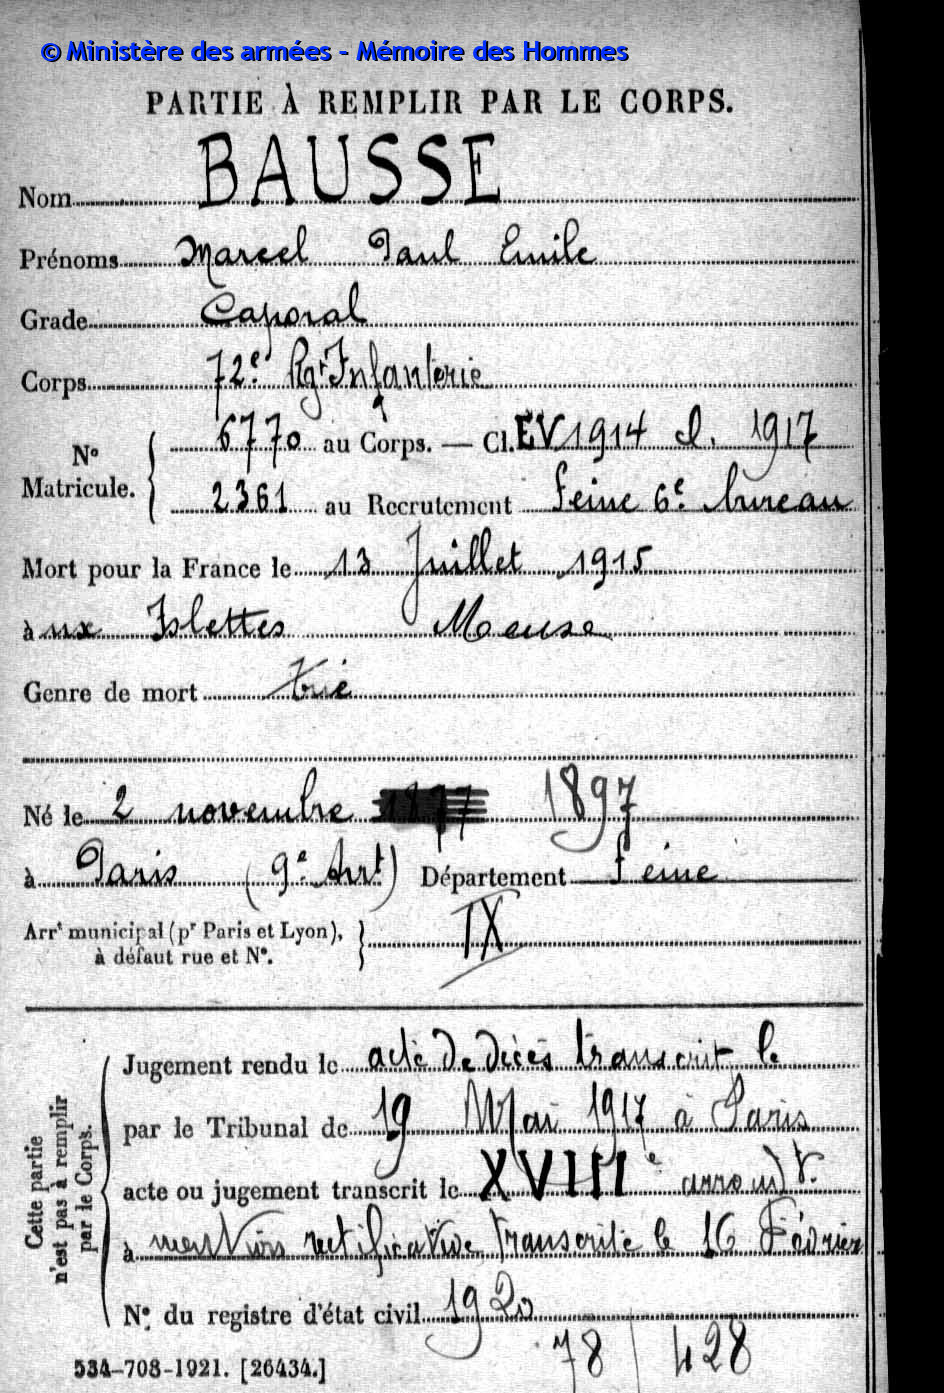 © Ministère des armées - Mémoire des Hommes
PARTIE À REMPLIR PAR LE CORPS.
Nom BAUSSE
Prénoms Marcel Paul Emile
Grade Caporal
Corps 72e Rgt Infanterie
No Matricule. { 6770 au Corps. — Cl. EV 1914 cl. 1917
2361 au Recrutement Seine 6e bureau
Mort pour la France le 13 Juillet 1915
à ux Islettes Meuse
Genre de mort tué
Né le 2 novembre 1897
à Paris (9e Arrt) Département Seine
Arrt municipal (pr Paris et Lyon), à défaut rue et No. } IX
Cette partie n'est pas à remplir par le Corps.
Jugement rendu le acte de décès transcrit le
par le Tribunal de 19 Mai 1917 à Paris
acte ou jugement transcrit le XVIIIe arrondt.
à mention rectificative transcrite le 16 Février
No du registre d'état civil 1920
78 / 428
534-708-1921. [26434.]